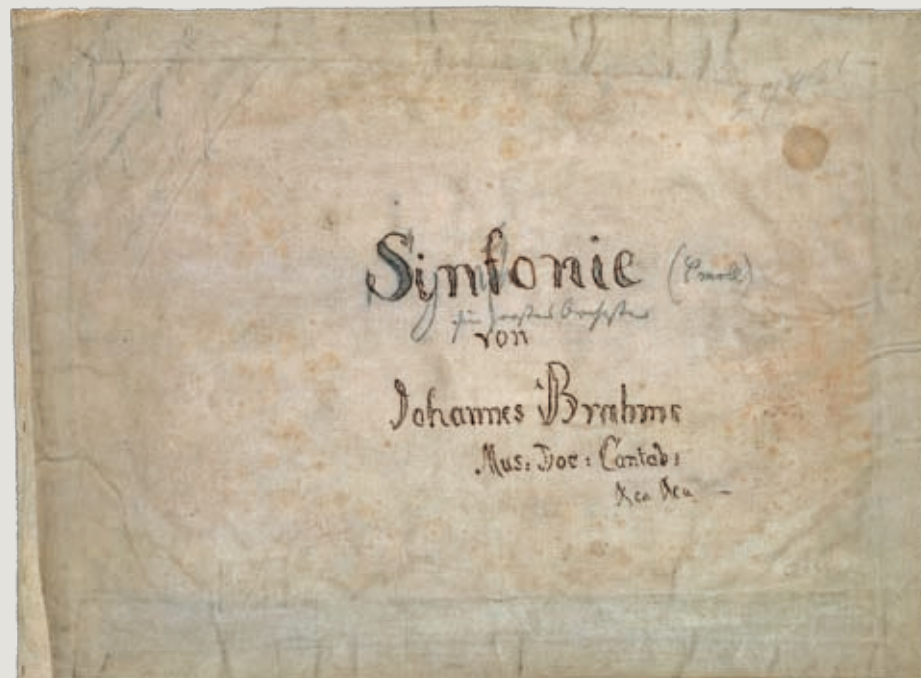 Sinfonie (C moll)
für grosses Orchester
von
Johannes Brahms
Mus: Doc: Cantab: